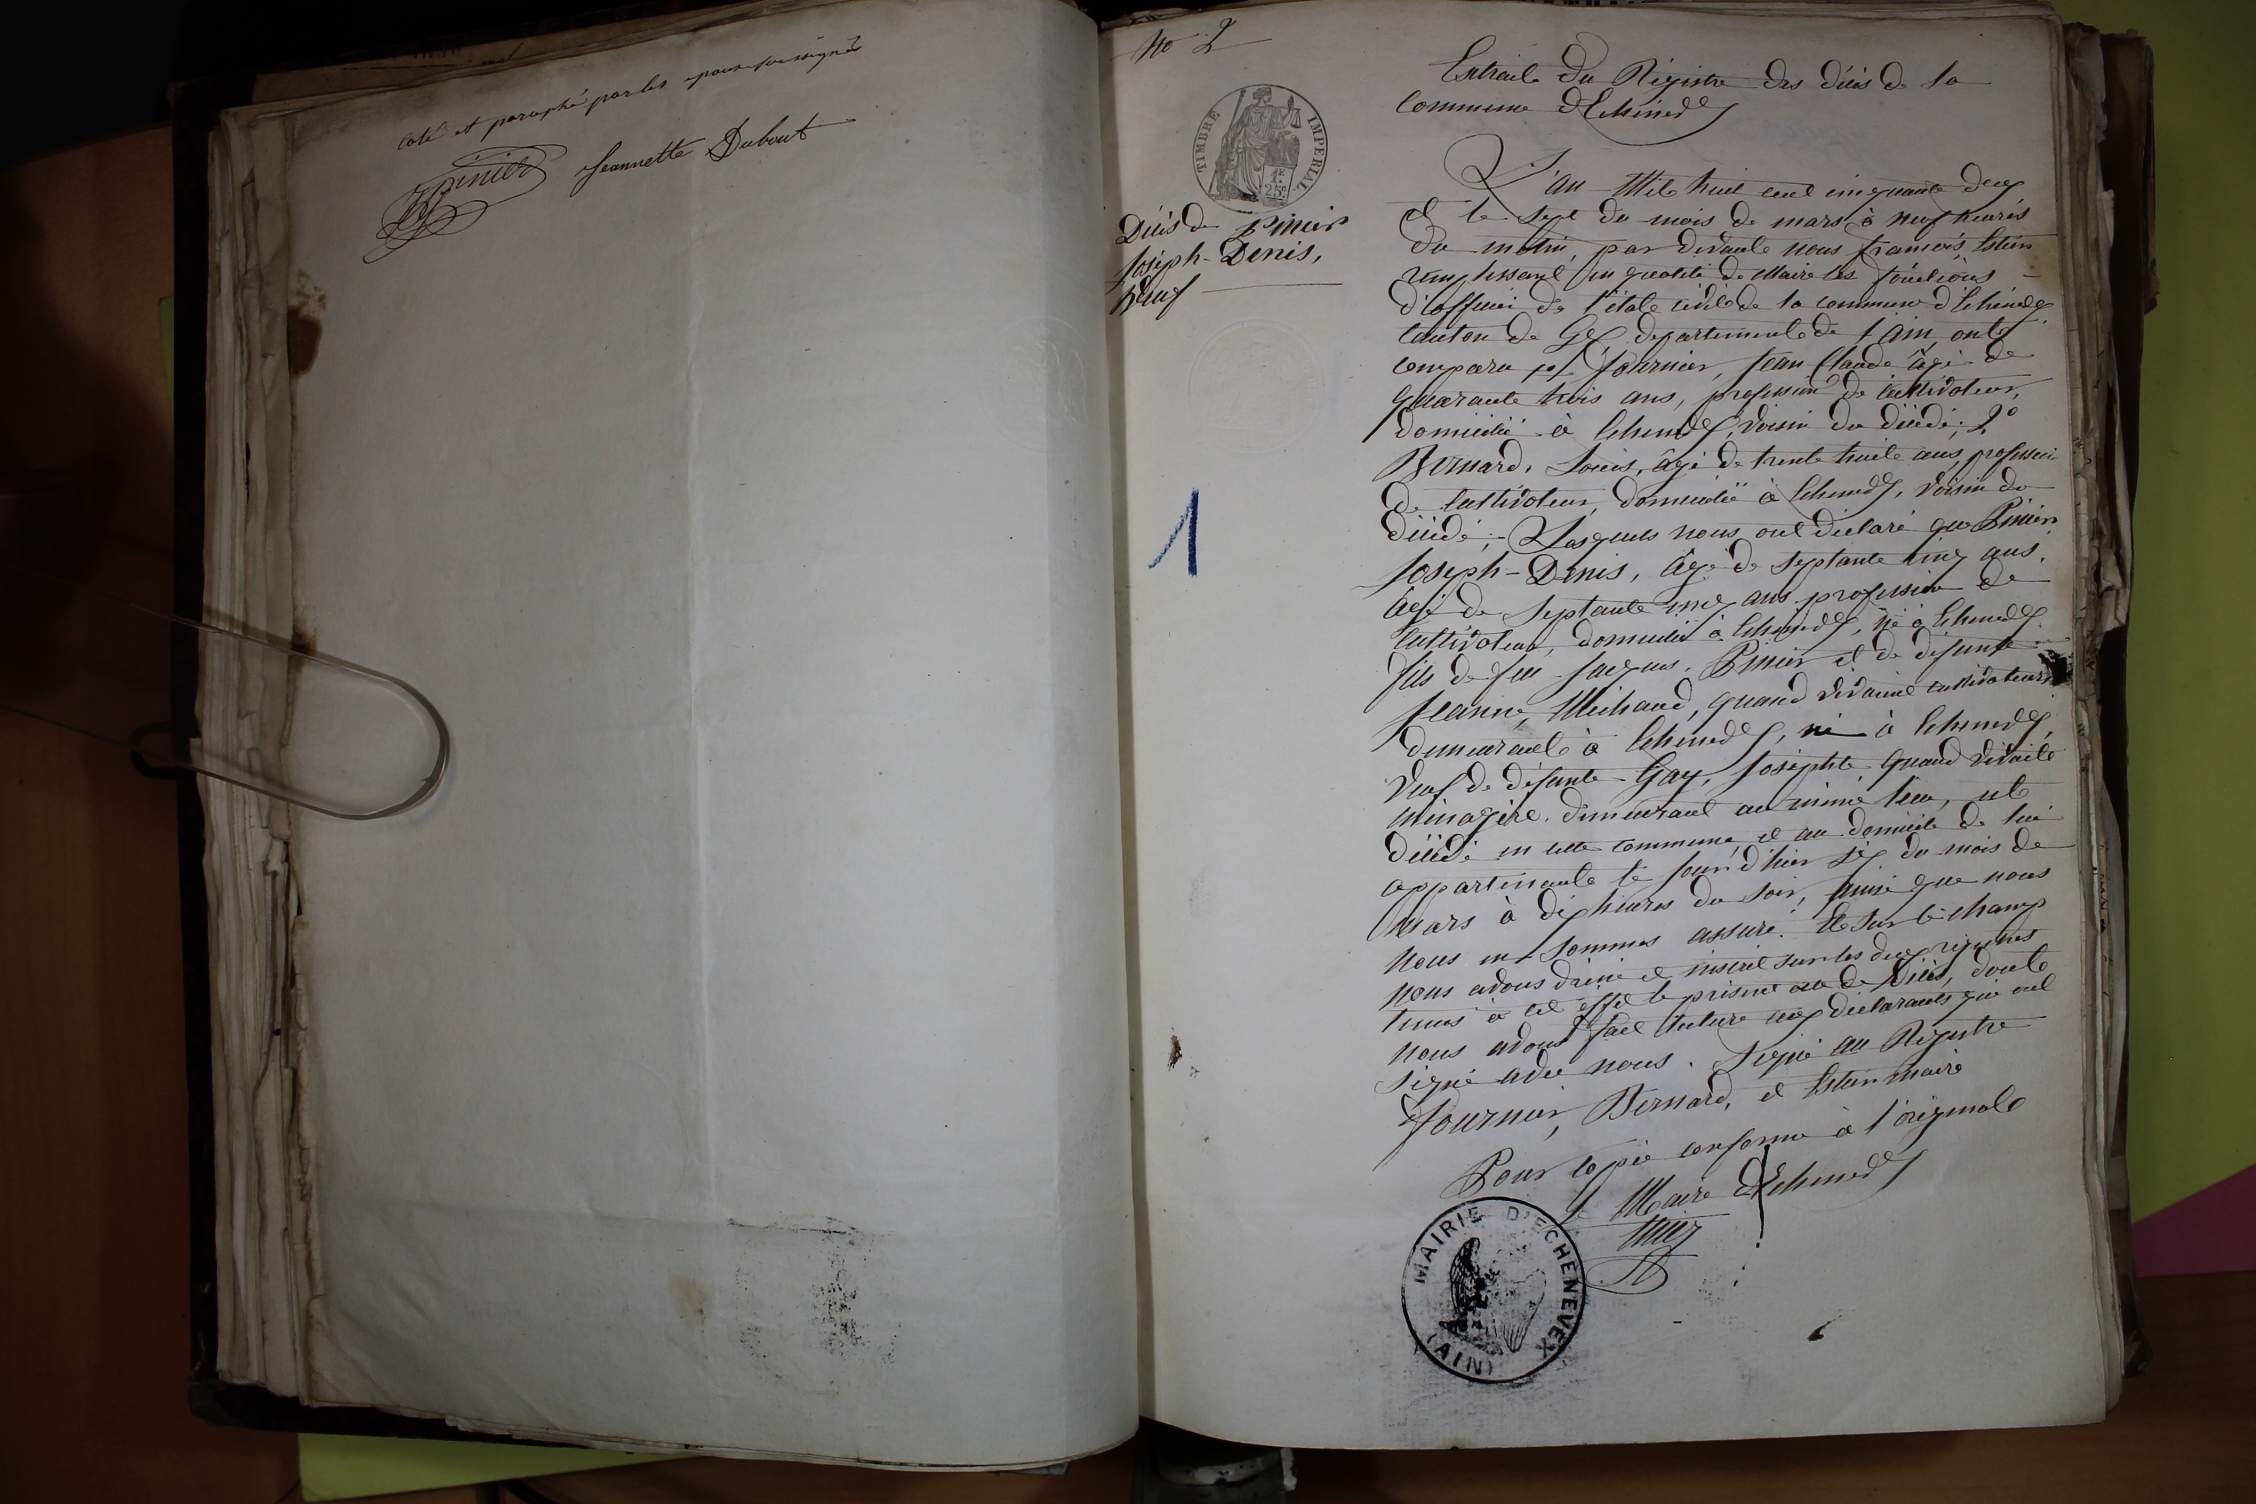 coté et paraphé par les époux soussignés
JPinier Jeannette Dubout
No 2
TIMBRE IMPERIAL
1F.
25c.
Décès de Pinier
Joseph-Denis,
Veuf
1
Extrait du Régistre des décès de la
Commune d'Echenevex
L'an Mil huit cent cinquante deux
et le sept du mois de mars à neuf heures
du matin, par devant nous François, Estier
remplissant en qualité de Maire les fonctions
d'officier de l'état civil de la commune d'Echenevex
Canton de Gex, département de l'ain, ont
comparu 1° Fournier, Jean Claude âgé de
quarante trois ans, profession de cultivateur,
domicilié à Echenevex, voisin du décédé; 2°
Bernard, Louis, âgé de trente huit ans, profession
de Cultivateur, domicilié à Echenevex, voisin du
décédé; - Lesquels nous ont déclaré que Pinier
Joseph-Denis, âgé de septante cinq ans,
âgé de septante cinq ans profession de
Cultivateur, domicilié à Echenevex, né à Echenevex
fils de feu Jacques Pinier et de défunte
Jeanne, Michaud, quand vivaient cultivateurs
demeurant à Echenevex, né à Echenevex,
Veuf de défunte Gay, Josephte quand vivait
ménagère, demeurant au même lieu, est
décédé en cette commune, et au domicile de lui
appartenant le jour d'hier six du mois de
mars à dix heures du soir, ainsi que nous
nous en sommes assuré. Et sur le champ
nous avons dressé et inscrit sur les deux régistres
tenus à cet effet le présent acte de Décès, dont
nous avons fait lecture aux déclarants qui ont
signé avec nous. Signé au Registre
Fournier, Bernard, et Estier maire
Pour copie conforme à l'original
Le Maire d'Echenevex
MAIRIE D'ECHENEVEX
(AIN)